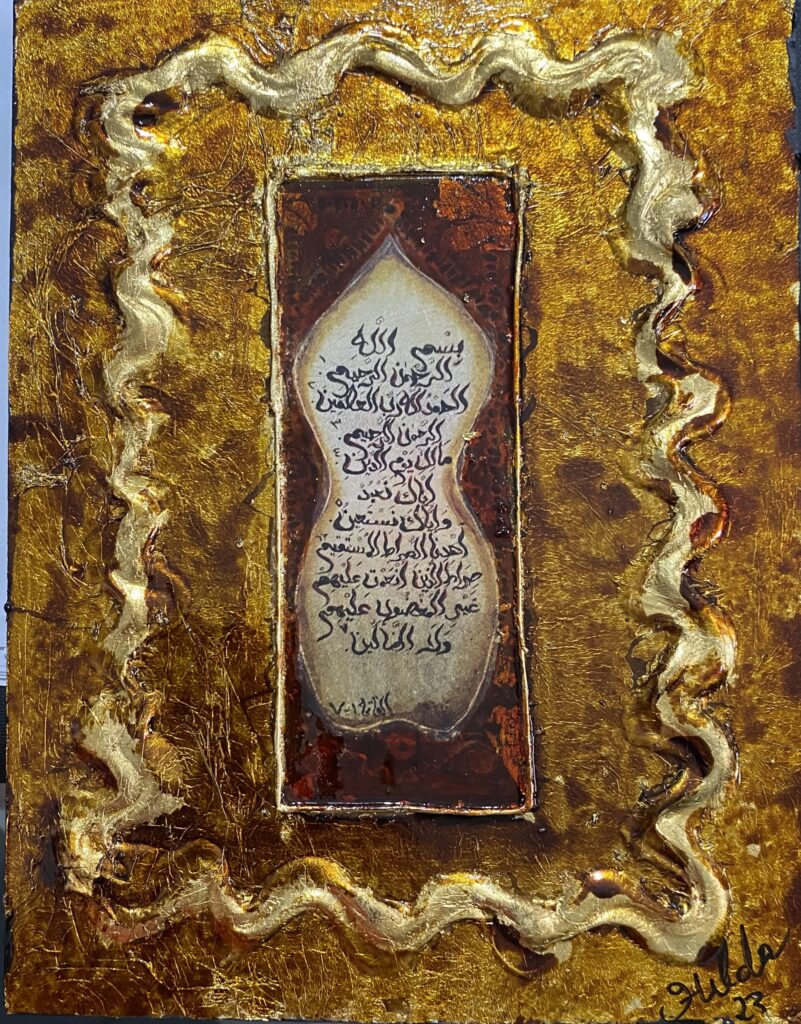 بِسْمِ اللَّه
الرحمن الرحيم
الحمد لله رب العالمين
الرحمن الرحيم
مالك يوم الدين
إياك نعبد
وإياك نستعين
اهدنا الصراط المستقيم
صراط الذين انعمت عليهم
غير المغضوب عليهم
ولا الضالين
الفاتحة ١-٧
23